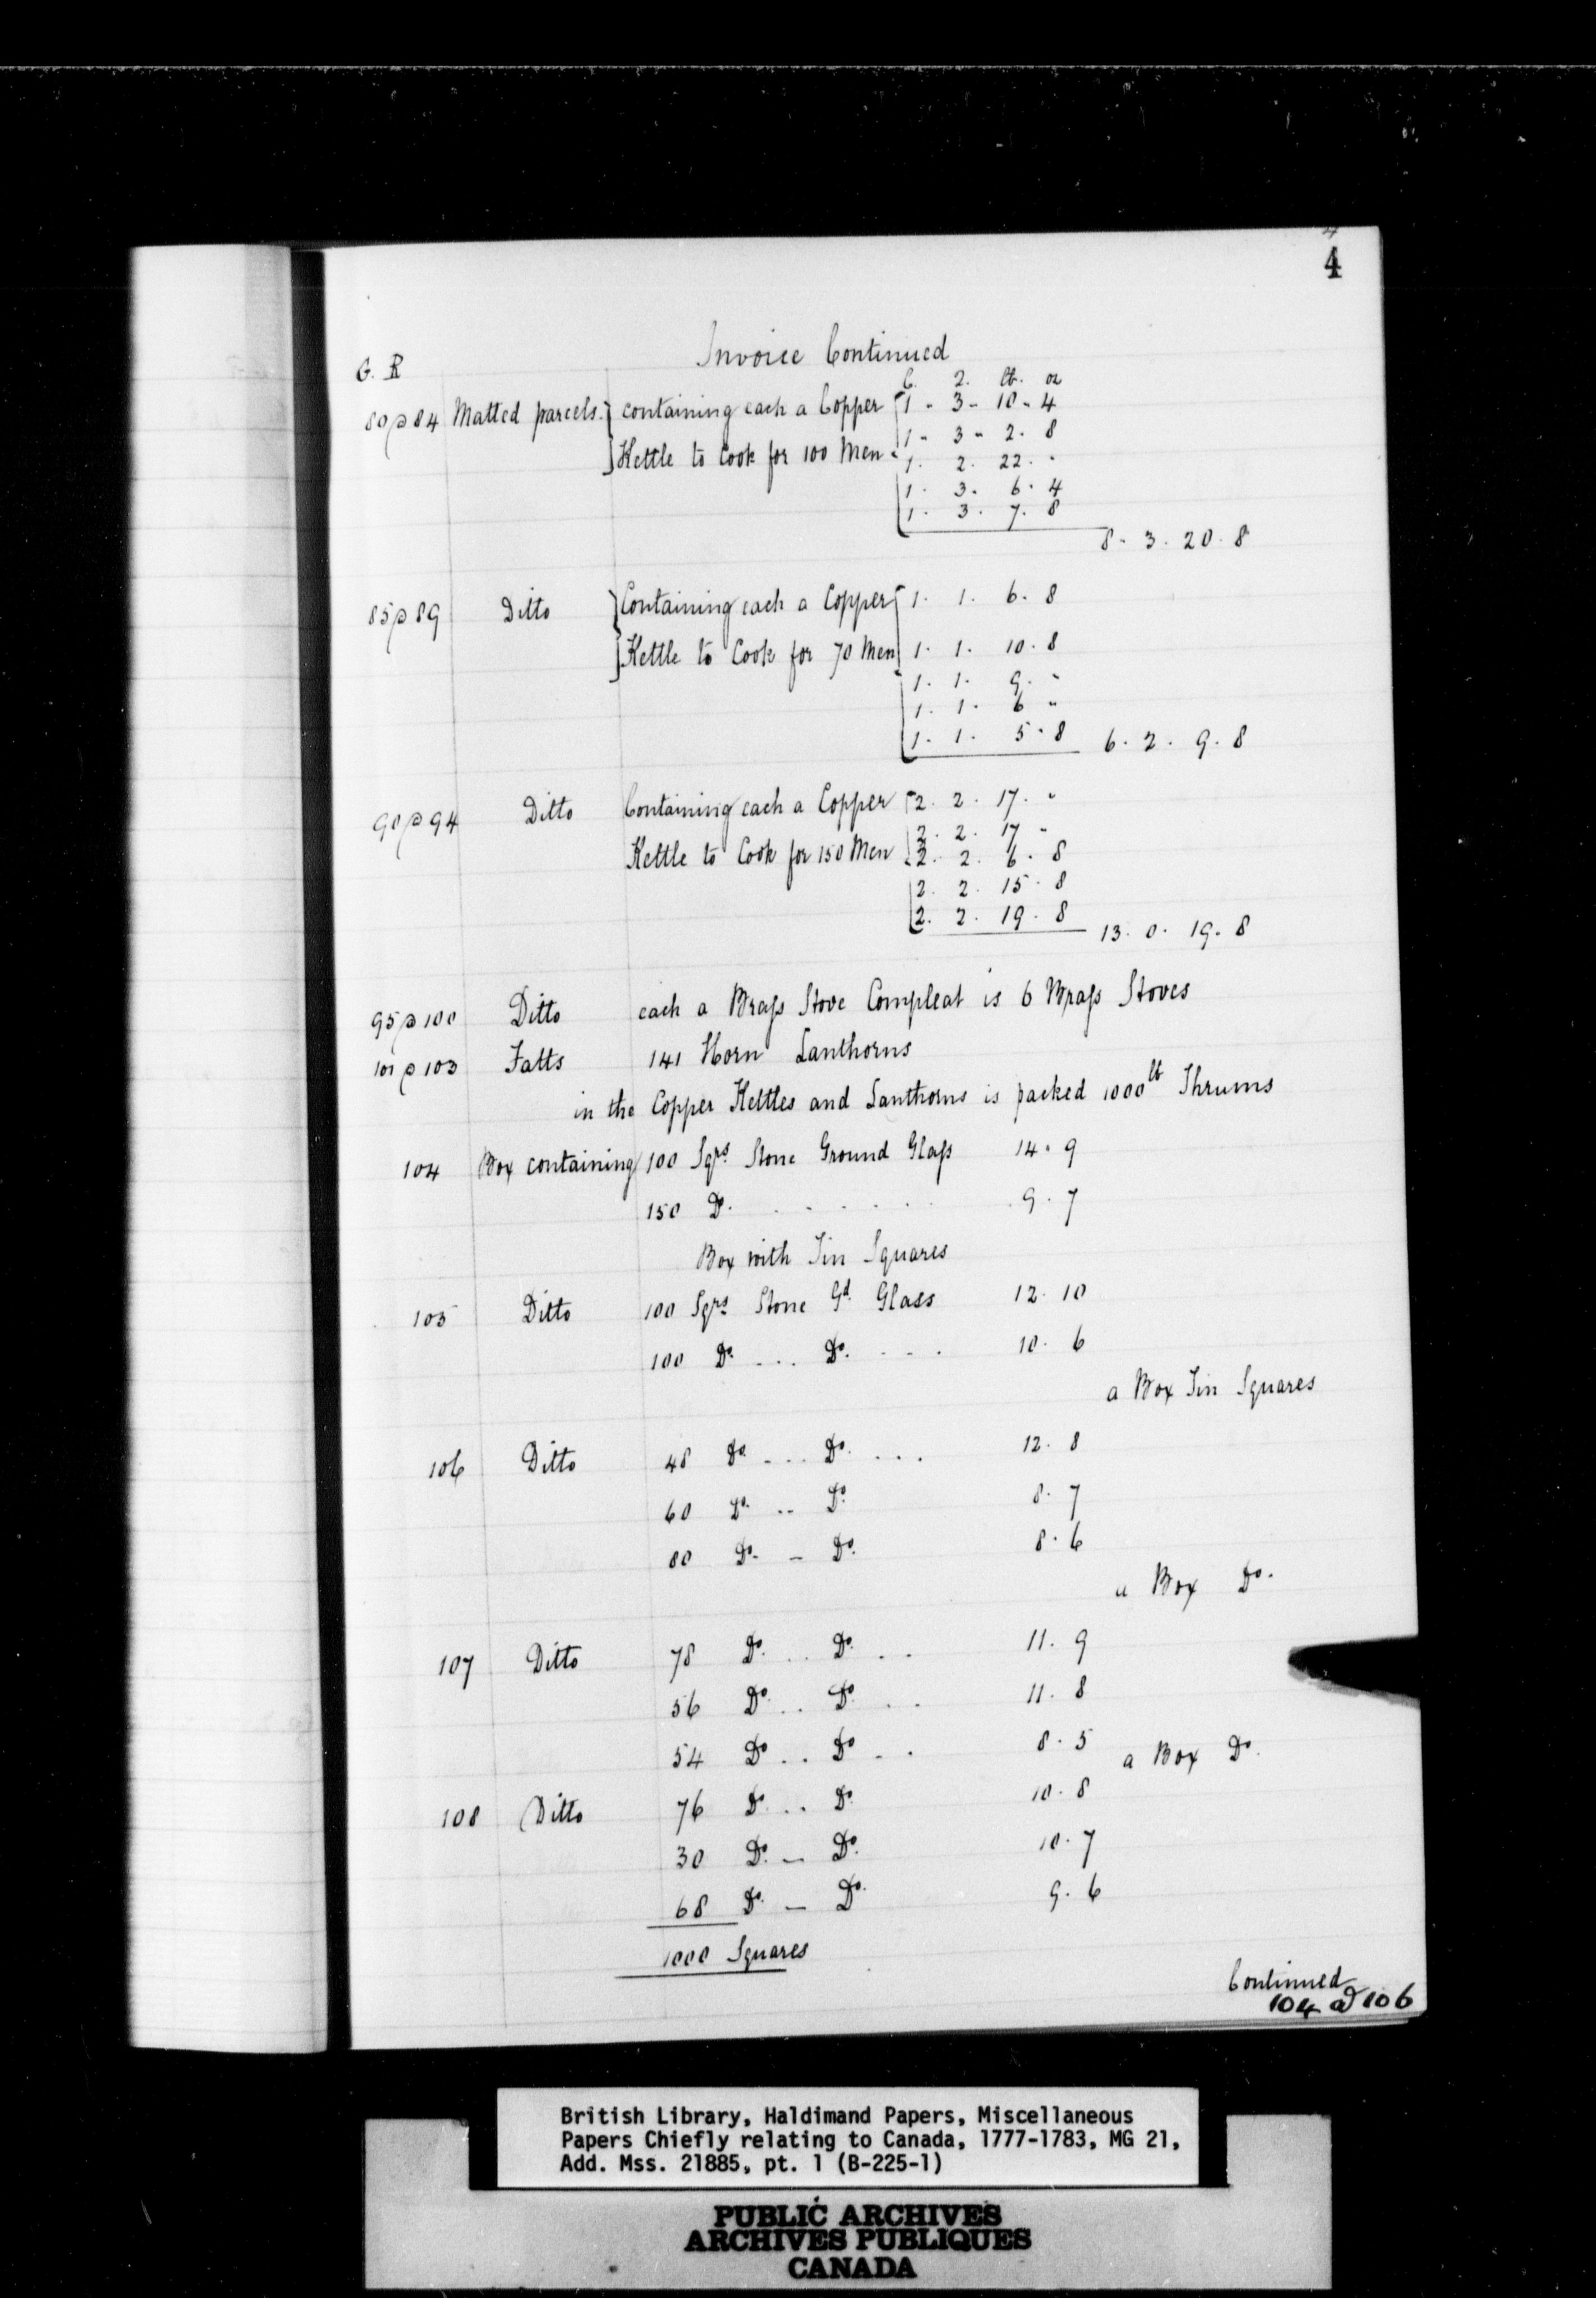 4
4
Invoice Continued
G. R
C. 2. lb. oz
80 @ 84 Matted parcels. containing each a Copper 1 - 3 - 10 - 4
1 - 3 - 2. 8
Kettle to Cook for 100 Men 1. 2. 22. "
1. 3. 6. 4
1. 3. 7. 8
8. 3. 20. 8
85 @ 89 Ditto Containing each a Copper 1. 1. 6. 8
Kettle to Cook for 70 Men 1. 1. 10. 8
1. 1. 9. "
1. 1. 6 "
1. 1. 5. 8 6. 2. 9. 8
90 @ 94 Ditto Containing each a Copper 2. 2. 17. "
2. 2. 17 "
Kettle to Cook for 150 Men 2. 2. 6. 8
2. 2. 15. 8
2. 2. 19. 8 13. 0. 19. 8
95 @ 100 Ditto each a Brass Stove Compleat is 6 Brass Stoves
101 @ 103 Fatts 141 Horn Lanthorns
in the Copper Kettles and Lanthorns is packed 1000lb Thrums
104 Box containing 100 Sqrs. Stone Ground Glass 14. 9
150 Do. . . . . . . 9. 7
Box with Tin Squares
105 Ditto 100 Sqrs. Stone Gd. Glass 12. 10
100 Do. ... Do. ... 10. 6
a Box Tin Squares
106 Ditto 48 Do. ... Do. ... 12. 8
60 Do. .. Do. 8. 7
80 Do. - Do. 8. 6
a Box Do.
107 Ditto 78 Do. .. Do. .. 11. 9
56 Do. .. Do. .. 11. 8
54 Do. .. Do. .. 8. 5
a Box Do.
108 Ditto 76 Do. .. Do. 10. 8
30 Do. - Do. 10. 7
68 Do. - Do. 9. 6
1000 Squares
Continued
104 @ 106
British Library, Haldimand Papers, Miscellaneous
Papers Chiefly relating to Canada, 1777-1783, MG 21,
Add. Mss. 21885, pt. 1 (B-225-1)
PUBLIC ARCHIVES
ARCHIVES PUBLIQUES
CANADA